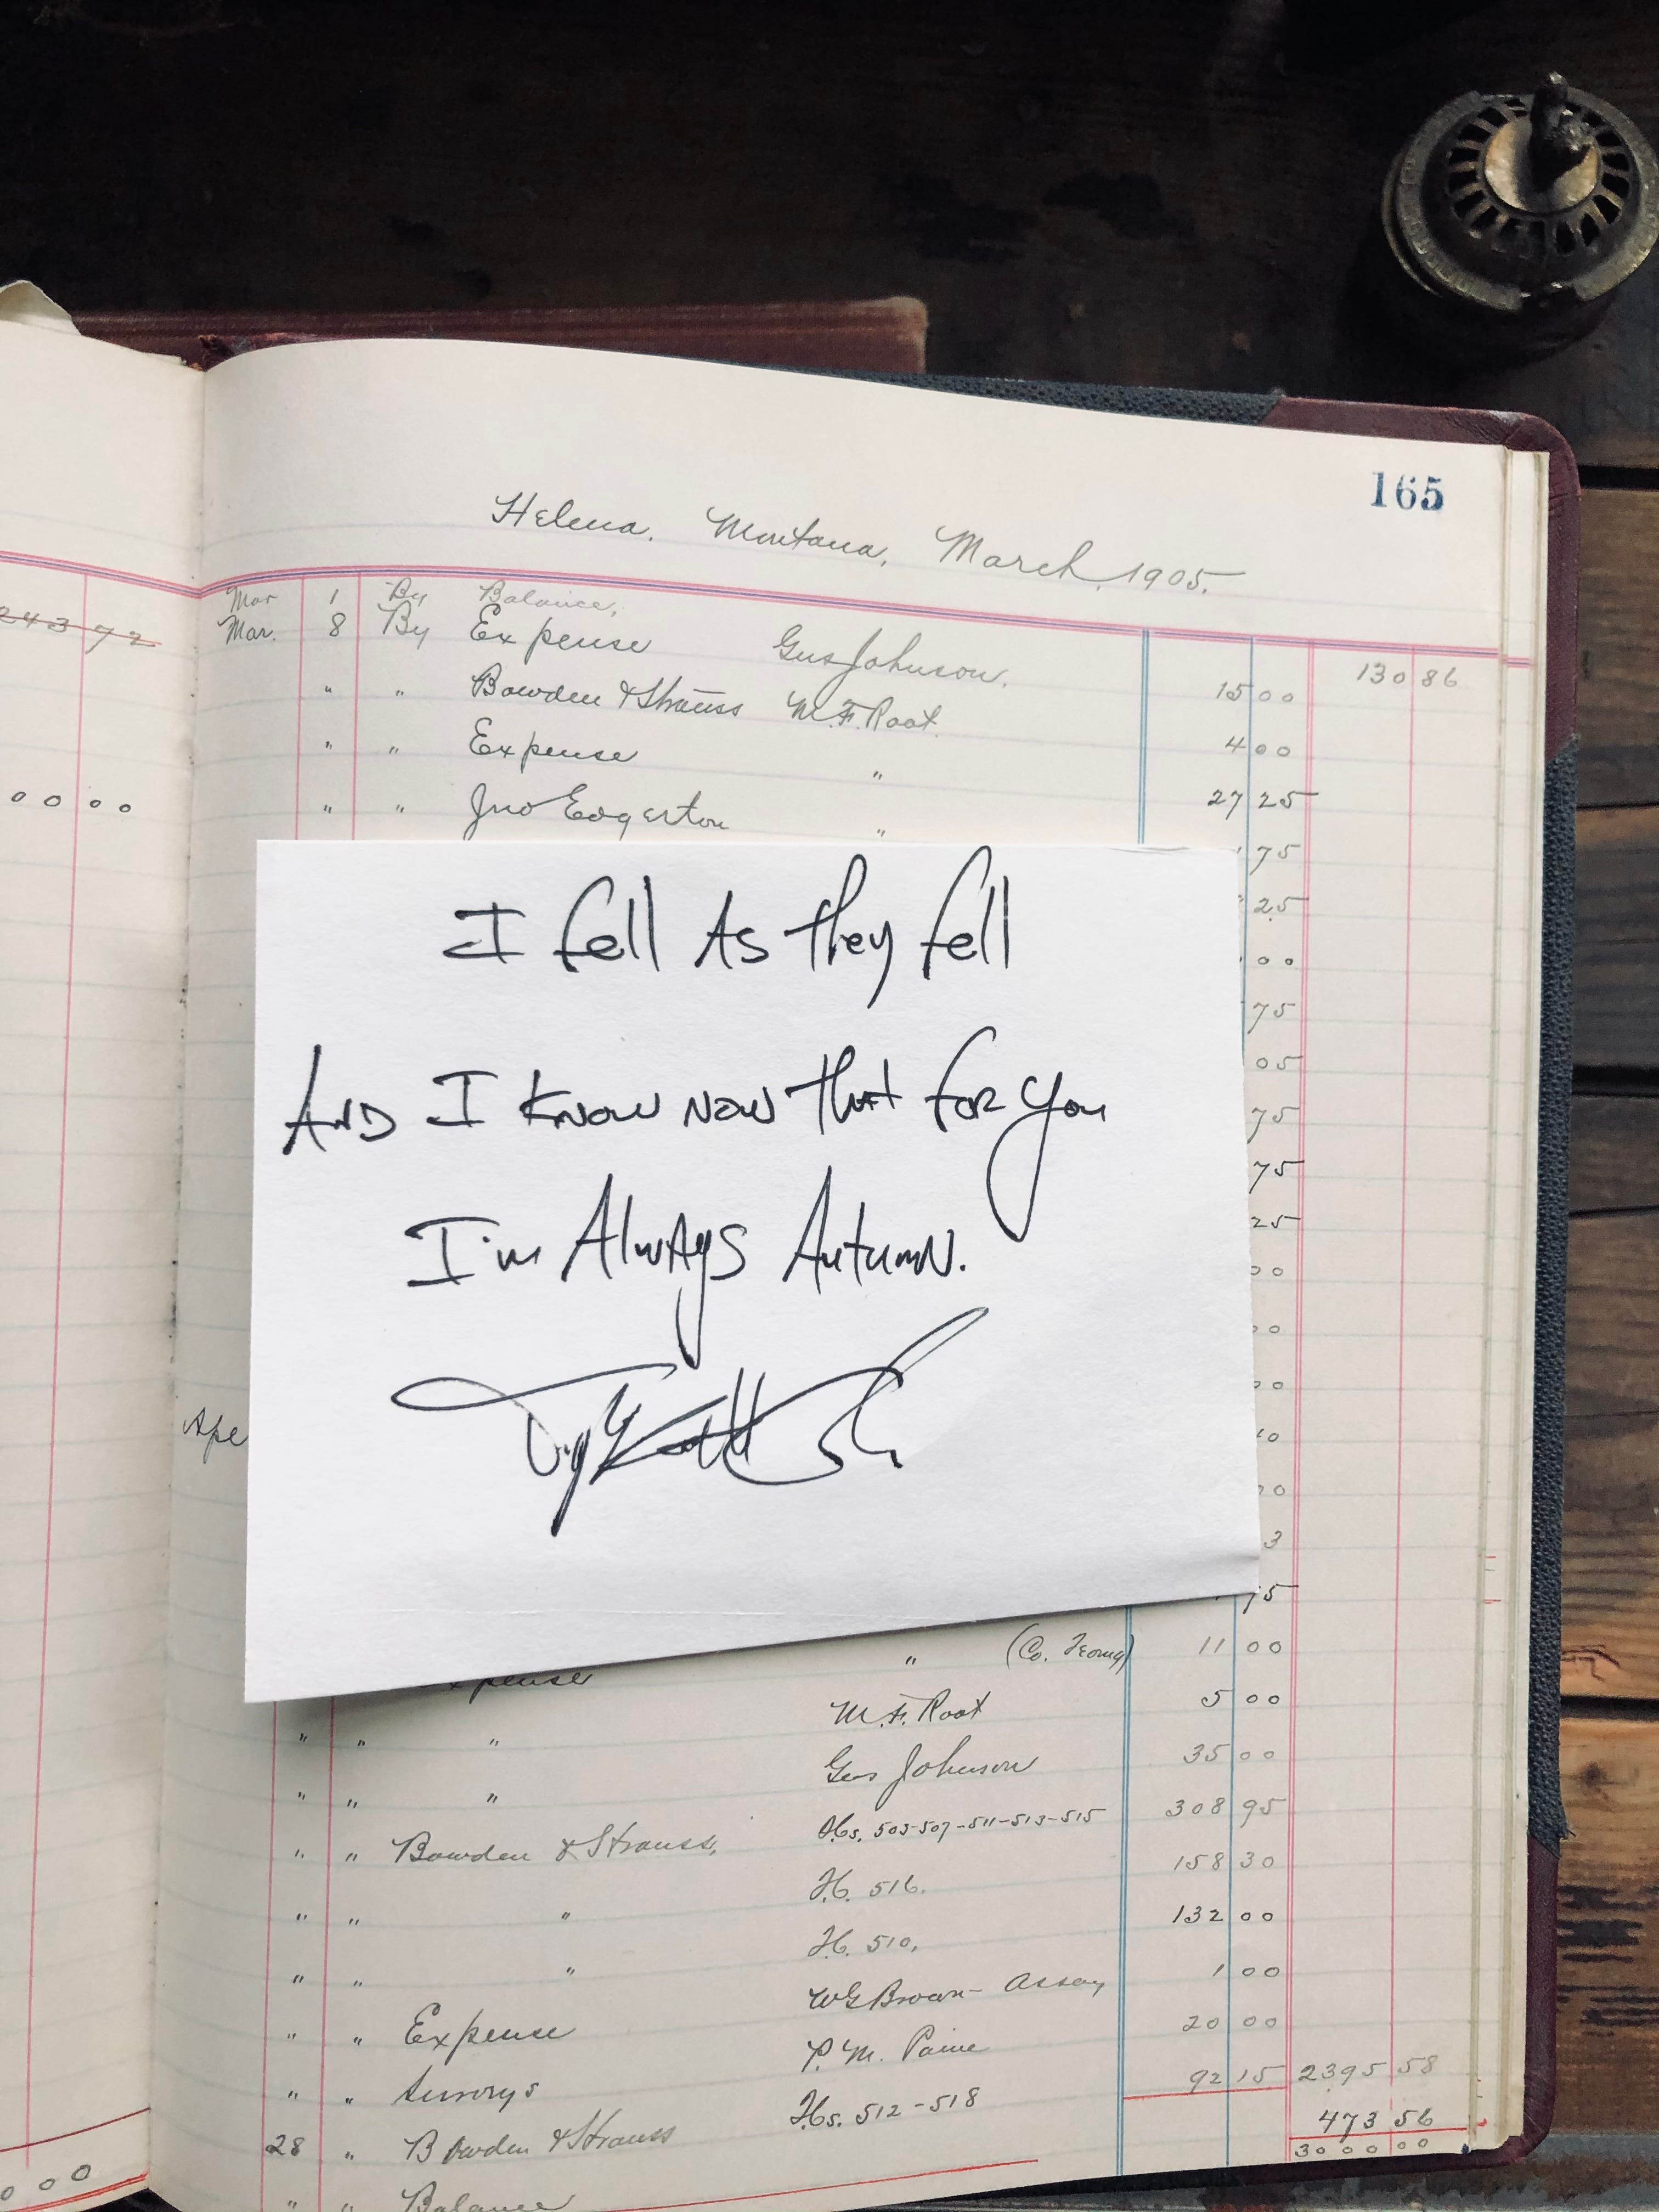 165
Helena, Montana, March, 1905.
243 72
Mar 1 By Balance, 130 86
Mar. 8 By Expense Gus Johnson. 15 00
" " Bowden & Strauss M.F. Root. 4 00
" " Expense " 27 25
00 00
" " Jno Edgerton " 75
25
00
75
05
75
75
25
I fell As they fell
And I know now that for you
I'm Always Autumn.
3
75
" (Co. ) 11 00
M.F. Root 5 00
" " " Gus Johnson 35 00
" " " Hs. 503-507-511-513-515 308 95
" " Bowden & Strauss, H. 516. 158 30
" " " H. 510, 132 00
" " " WG Brown - Assay 1 00
" " Expense P. M. Paine 20 00
" " Hs. 512-518 92 15 2395 58
28 " Bowden & Strauss 473 56
3000 00
" " Balance